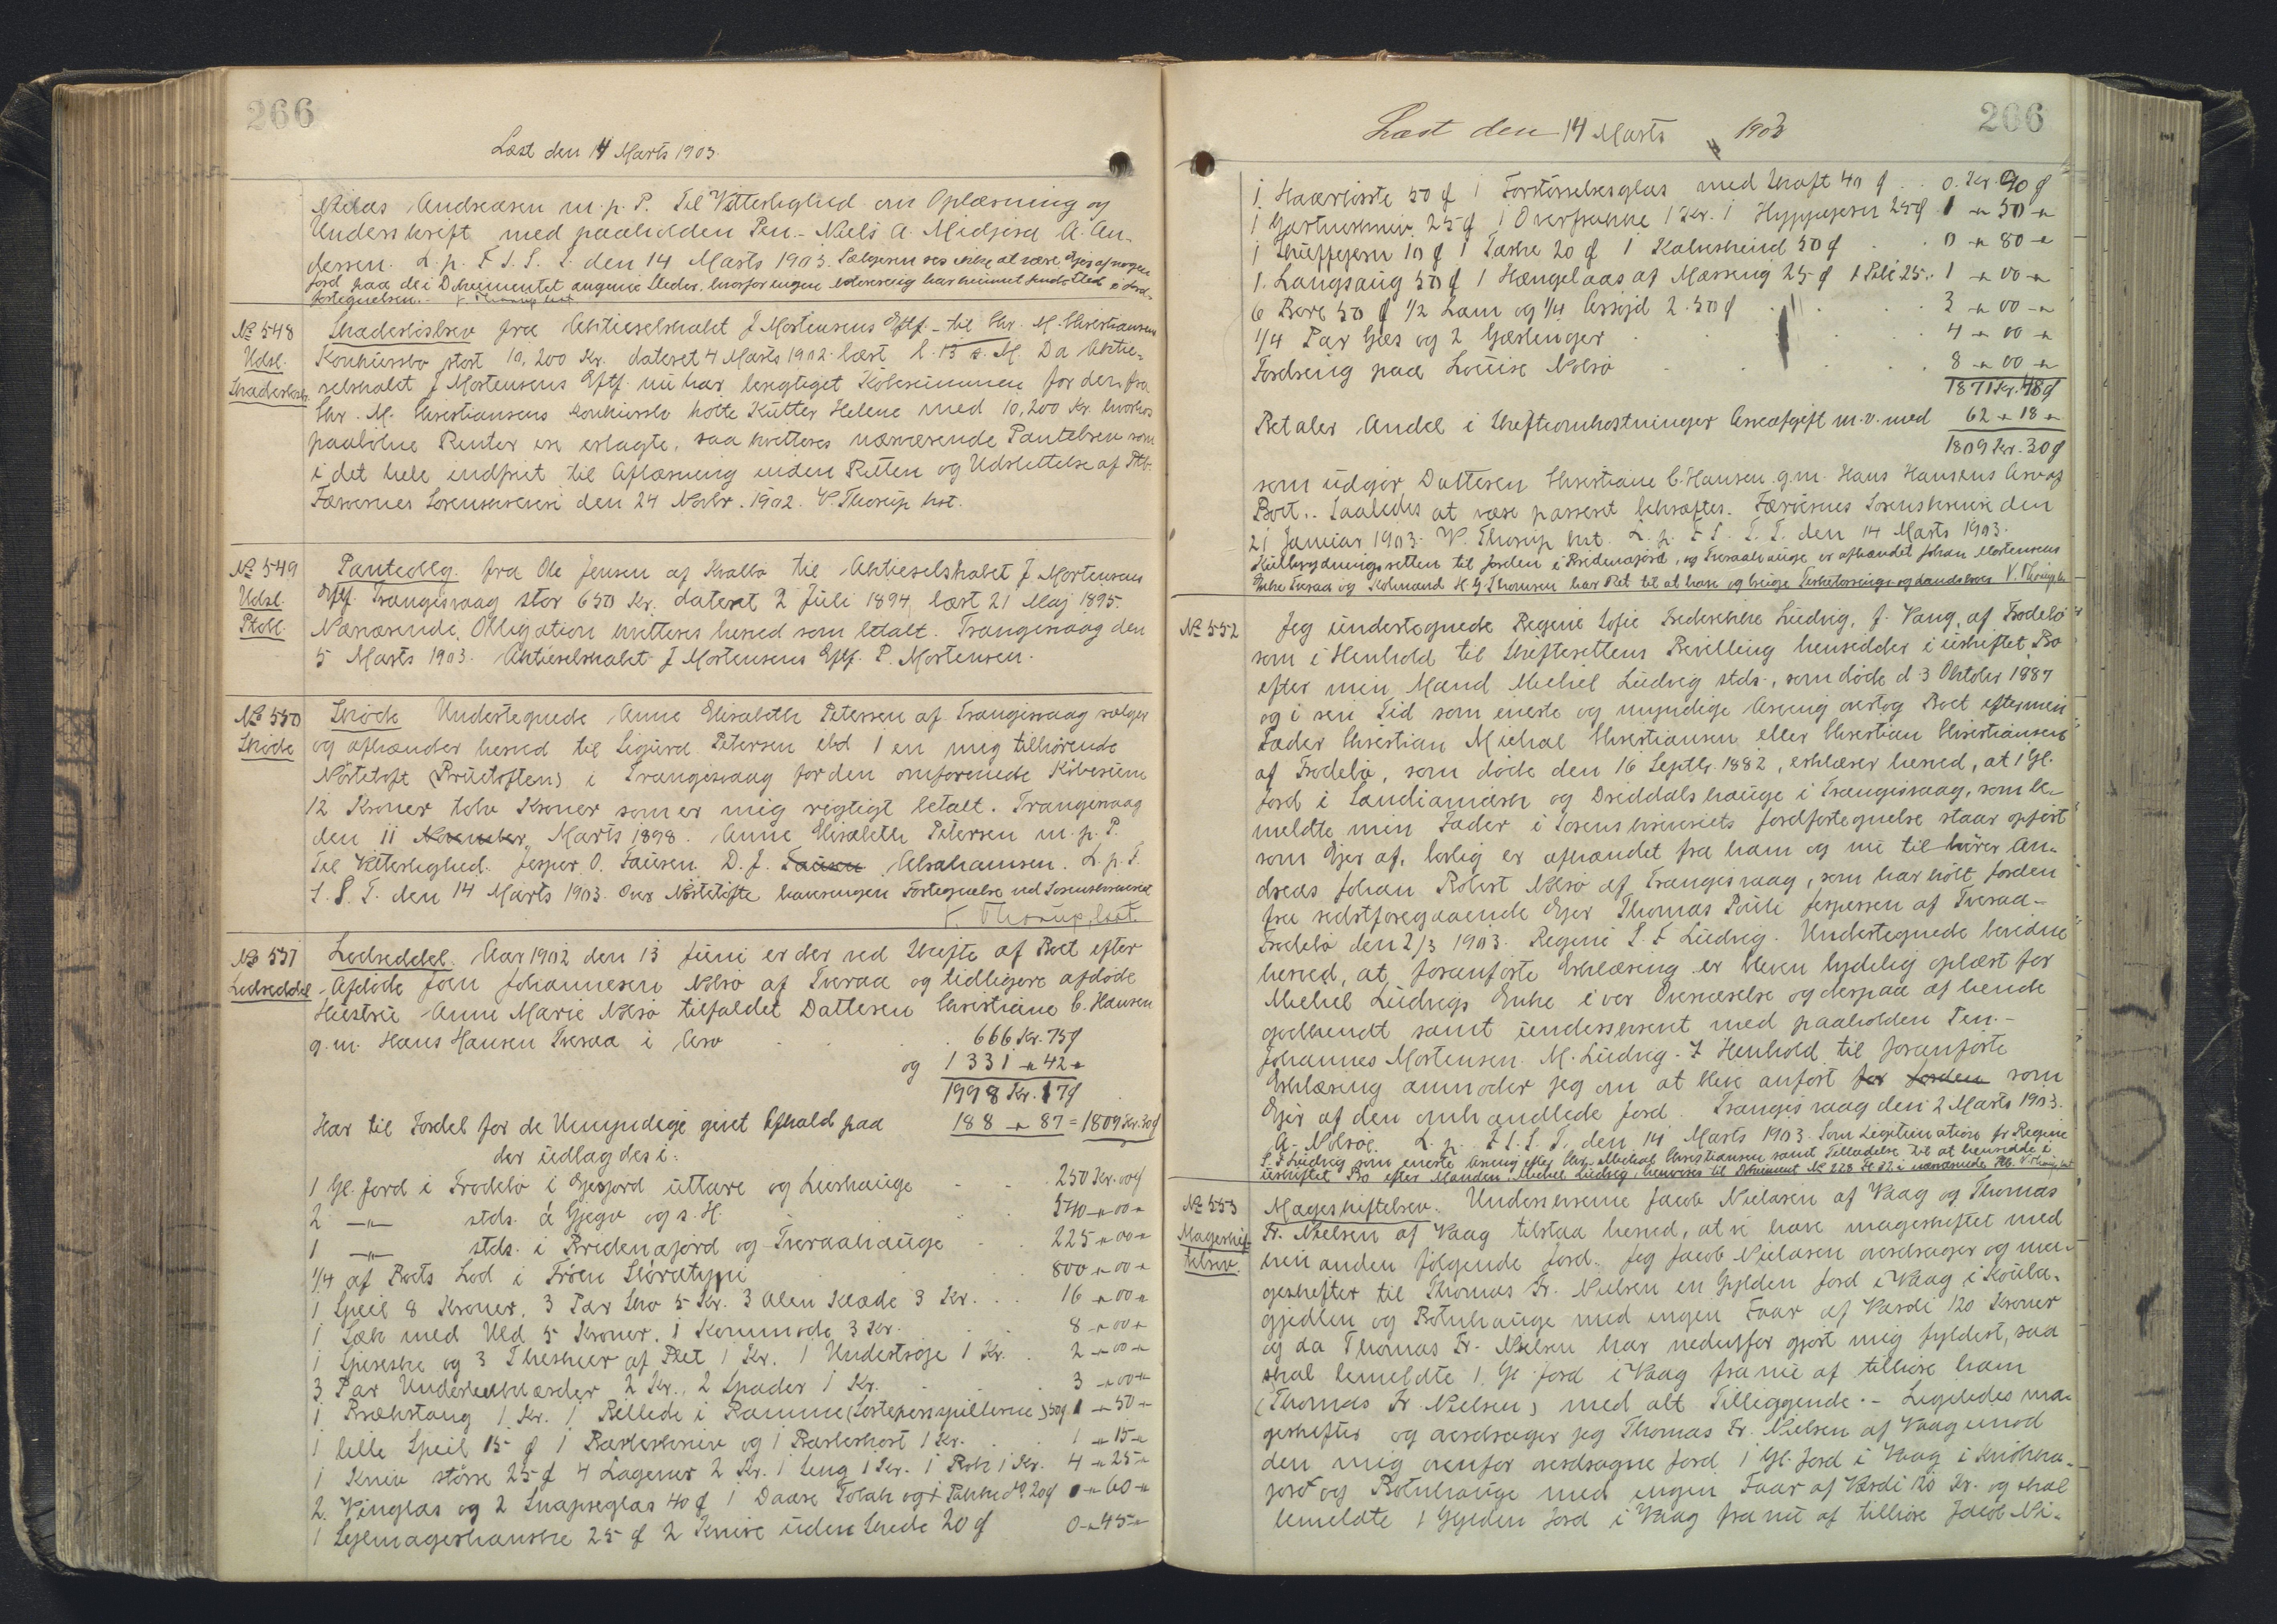 266
Læst den 14 Marts 1903.
Niclas Andreasen m. p. P. Til Vitterlighed om Oplæsning og
Underskrift med paaholden Pen - Niels A. Midjord A. An-
dersen. L. p. F S. S. T. den 14 Marts 1903. Sælgeren ses ikke at være Ejer af nogen
Jord paa de i Dokumentet angivne Steder, hvorfor ingen har kunnet finde Sted i Jord-
fortegnelsen. V. Thorup kst.
No 548
Udsl.
Skadesløsbr.
Skadesløsbrev fra Aktieselskabet J. Mortensens Eftf. til Chr. M. Christiansens
Konkursbo stort 10,200 Kr. dateret 4 Marts 1902 læst l. 13 s. M. Da Aktie-
selskabet J Mortensens Eftf. nu har berigtiget Købesummen for den fra
Chr. M. Christiansens Konkursbo købte Kutter Helene med 10,200 Kr. hvorhos
paaløbne Renter ere erlagte, saa kvitteres nærværende Pantebrev som
i det hele indfriet til Aflæsning inden Retten og Udslettelse af Ptb.
Færøernes Sorenskriveri den 24 Novbr. 1902. V. Thorup kst.
No 549
Udsl.
Ptobl.
Panteobl. fra Ole Jensen af Kvalbø til Aktieselskabet J Mortensens
Eftf. Trangisvaag stor 650 Kr. dateret 2 Juli 1894, læst 21 Maj 1895.
Nærværende Obligation kvitteres herved som betalt. Trangisvaag den
5 Marts 1903. Aktieselskabet J Mortensens Eftf. P. Mortensen.
No 550
Skøde
Skøde Undertegnede Anne Elisabeth Petersen af Trangisvaag sælger
og afhænder herved til Sigurd Petersen ibd 1 en mig tilhørende
Nöstetoft (Brustoften) i Trangisvaag for den omforenede Købesum
12 Kroner tolv Kroner som er mig rigtigt betalt. Trangisvaag
den 11 November, Marts 1898. Anne Elisabeth Petersen m. p. P.
Til Vitterlighed. Jesper O. Tausen. D. J. Tausen Abrahamsen. L. p. F.
S. S. T. den 14 Marts 1903. Over Nöstetöfte haves ingen Fortegnelse ved Sorenskriveriet
V. Thorup, kst.
No 551
Lodseddel
Lodseddel. Aar 1902 den 13 Juni er der ved Skifte af Boet efter
Afdøde Joen Johannesen Nolsø af Tveraa og tidligere afdøde
Hustru Anne Marie Nolsø tilfaldet Datteren Christiane C. Hansen
g. m. Hans Hansen Tveraa i Arv 666 Kr. 75 ø
og 1331 " 42 "
1998 Kr. 17 ø
Har til Fordel for de Umyndige givet Afkald paa 188 " 87 = 1809 Kr. 30 ø
der udlagdes i:
1 Gl. Jord i Frodebø i Gjesjord uttare og Liushauge 250 Kr. 00 ø
2 — " — stds. á Gjegv og s. H. 540 " 00 "
1 — " — stds. i Breidenafjord og Tveraahauge 225 " 00 "
1/4 af Boets Lod i Tröen Storatype 800 " 00 "
1 Speil 8 Kroner. 3 Par Sko 5 Kr. 3 Alen Klæde 3 Kr. 16 " 00 "
1 Sæk med Uld 5 Kroner. 1 Kommode 3 Kr. 8 " 00 "
1 Spiseske og 3 Theskeer af Plet 1 Kr. 1 Undertrøje 1 Kr. 2 " 00 "
3 Par Underbenklæder 2 Kr., 2 Spader 1 Kr. 3 " 00 "
1 Brækstang 1 Kr. 1 Billede i Ramme (Sorteperspillerne) 50 ø 1 " 50 "
1 lille Speil 15 ø 1 Barberkniv og 1 Barberkost 1 Kr. 1 " 15 "
1 Kniv større 25 ø 4 Lagener 2 Kr. 1 Seng 1 Kr. 1 Rok 1 Kr. 4 " 25 "
2 Vinglas og 2 Snapseglas 40 ø 1 Daase Tobak og 1 Pakke do 20 ø 0 " 60 "
1 Sejlmagerhandske 25 ø 2 Knive uden Skede 20 ø 0 " 45 "
266
Læst den 14 Marts 1903
1 Haarbörste 50 ø 1 Forstörrelsesglas med Skaft 40 ø 0. Kr. 90 ø
1 Gartnerkniv 25 ø 1 Overfrakke 1 Kr. 1 Hyppejern 25 ø 1 " 50 "
1 10 ø 1 Taske 20 ø 1 Kalveskind 50 ø 0 " 80 "
1. Langsaug 50 ø 1 Hængelaas af Messing 25 ø 1 25 1 " 00 "
6 Børe 50 ø 1/2 Lam og 1/4 2.50 ø 3 " 00 "
1/4 Par Gæs og 2 Gæslinger 4 " 00 "
Fordring paa Louise Nolsø 8 " 00 "
1871 Kr. 48 ø
Betaler Andel i Skifteomkostninger Arveafgift m. v. med 62 " 18 "
1809 Kr. 30 ø
som udgør Datteren Christiane C. Hansen g. m. Hans Hansens Arv af
Boet. Saaledes at være passeret bekræftes. Færøernes Sorenskriveri den
21 Januar 1903. V. Thorup kst. L. p. F S. S. T. den 14 Marts 1903.
Kulbrydningsretten til Jorden i Breidenafjord, og Tveraahauge er afhændet Johan Mortensens
Enke Tveraa og Kobmand H. J Thomsen har Ret til at have og bruge V. Thorup k.
No 552
Jeg undertegnede Regine Sofie Frederikke Ludvig, f. Vang, af Frodebø
som i Henhold til Skifterettens Bevilling hensidder i uskiftet Bo
efter min Mand Michel Ludvig stds., som døde d. 3 Oktober 1887
og i sin Tid som eneste og myndige Arving overtog Boet efter min
Fader Christian Michal Christiansen eller Christian Christiansen
af Frodebø, som døde den 16 Septbr. 1882, erklærer herved, at 1 Gl.
Jord i Sandiamærk og Dreddalshauge i Trangisvaag, som be-
meldte min Fader i Sorenskriveriets Jordfortegnelse staar opført
som Ejer af, lovlig er afhændet fra ham og nu tilhører An-
dreas Johan Robert Nolsø af Trangisvaag, som har købt Jorden
fra sidstforegaaende Ejer Thomas Pauli Jespersen af Tveraa -
Frodebø den 2/3 1903. Regine S. F Ludvig. Undertegnede bevidne
herved, at foranførte Erklæring er bleven lydelig oplæst for
Michel Ludvigs Enke i vor Overværelse og derpaa af hende
godkendt samt underskrevet med paaholden Pen. -
Johannes Mortensen. M. Ludvig. I Henhold til foranførte
Erklæring anmoder jeg om at blive anført for Jorden som
Ejer af den omhandlede Jord. Trangisvaag den 2 Marts 1903.
A. Nolsøe. L. p. F S. S. T. den 14 Marts 1903. Som Legitimation fr Regine
S. F Ludvig som eneste Arving efter Chr. Michal Christiansen samt Tilladelse til at hensidde i
uskiftet Bo efter Manden Michel Ludvig, henvises til Dokument No 228 V. Thorup kst
No 553
Mageskif-
tebrev.
Mageskiftebrev. Underskrevne Jacob Nielasen af Vaag og Thomas
Fr. Nielsen af Vaag tilstaa herved, at vi have mageskiftet med
hinanden følgende Jord. Jeg Jacob Nielasen overdrager og ma-
geskifter til Thomas Fr. Nielsen en Gylden Jord i Vaag i Koula-
gjedlen og Botnhauge med ingen Faar af Værdi 120 Kroner
og da Thomas Fr. Nielsen har nedenfor gjort mig fyldest, saa
skal bemeldte 1. Gl Jord i Vaag fra nu af tilhøre ham
(Thomas Fr. Nielsen) med alt Tilliggende. - Ligeledes ma-
geskifter og overdrager jeg Thomas Fr. Nielsen af Vaag imod
den mig ovenfor overdragne Jord 1 Gl. Jord i Vaag i
og Botnhauge med ingen Faar af Værdi 120 Kr. og skal
bemeldte 1 Gylden Jord i Vaag fra nu af tilhøre Jacob Ni-